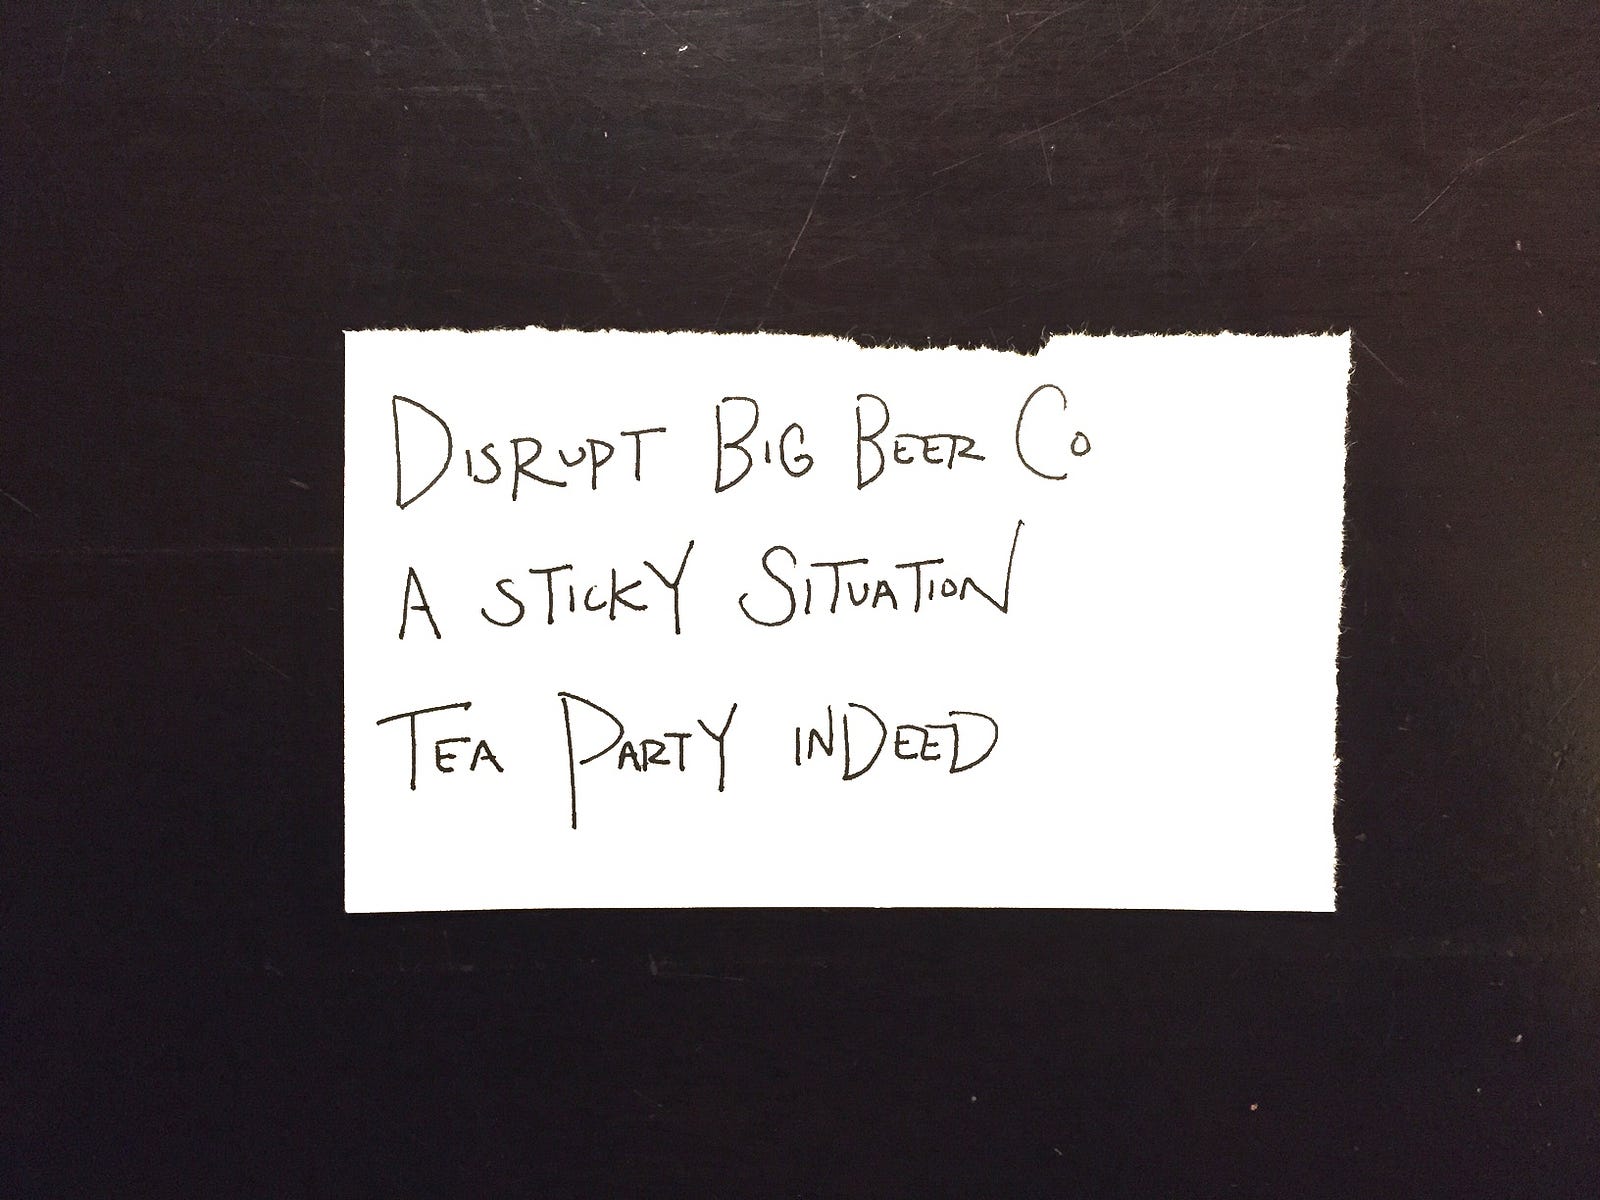 Disrupt Big Beer Co
A sticky Situation
Tea Party inDeed